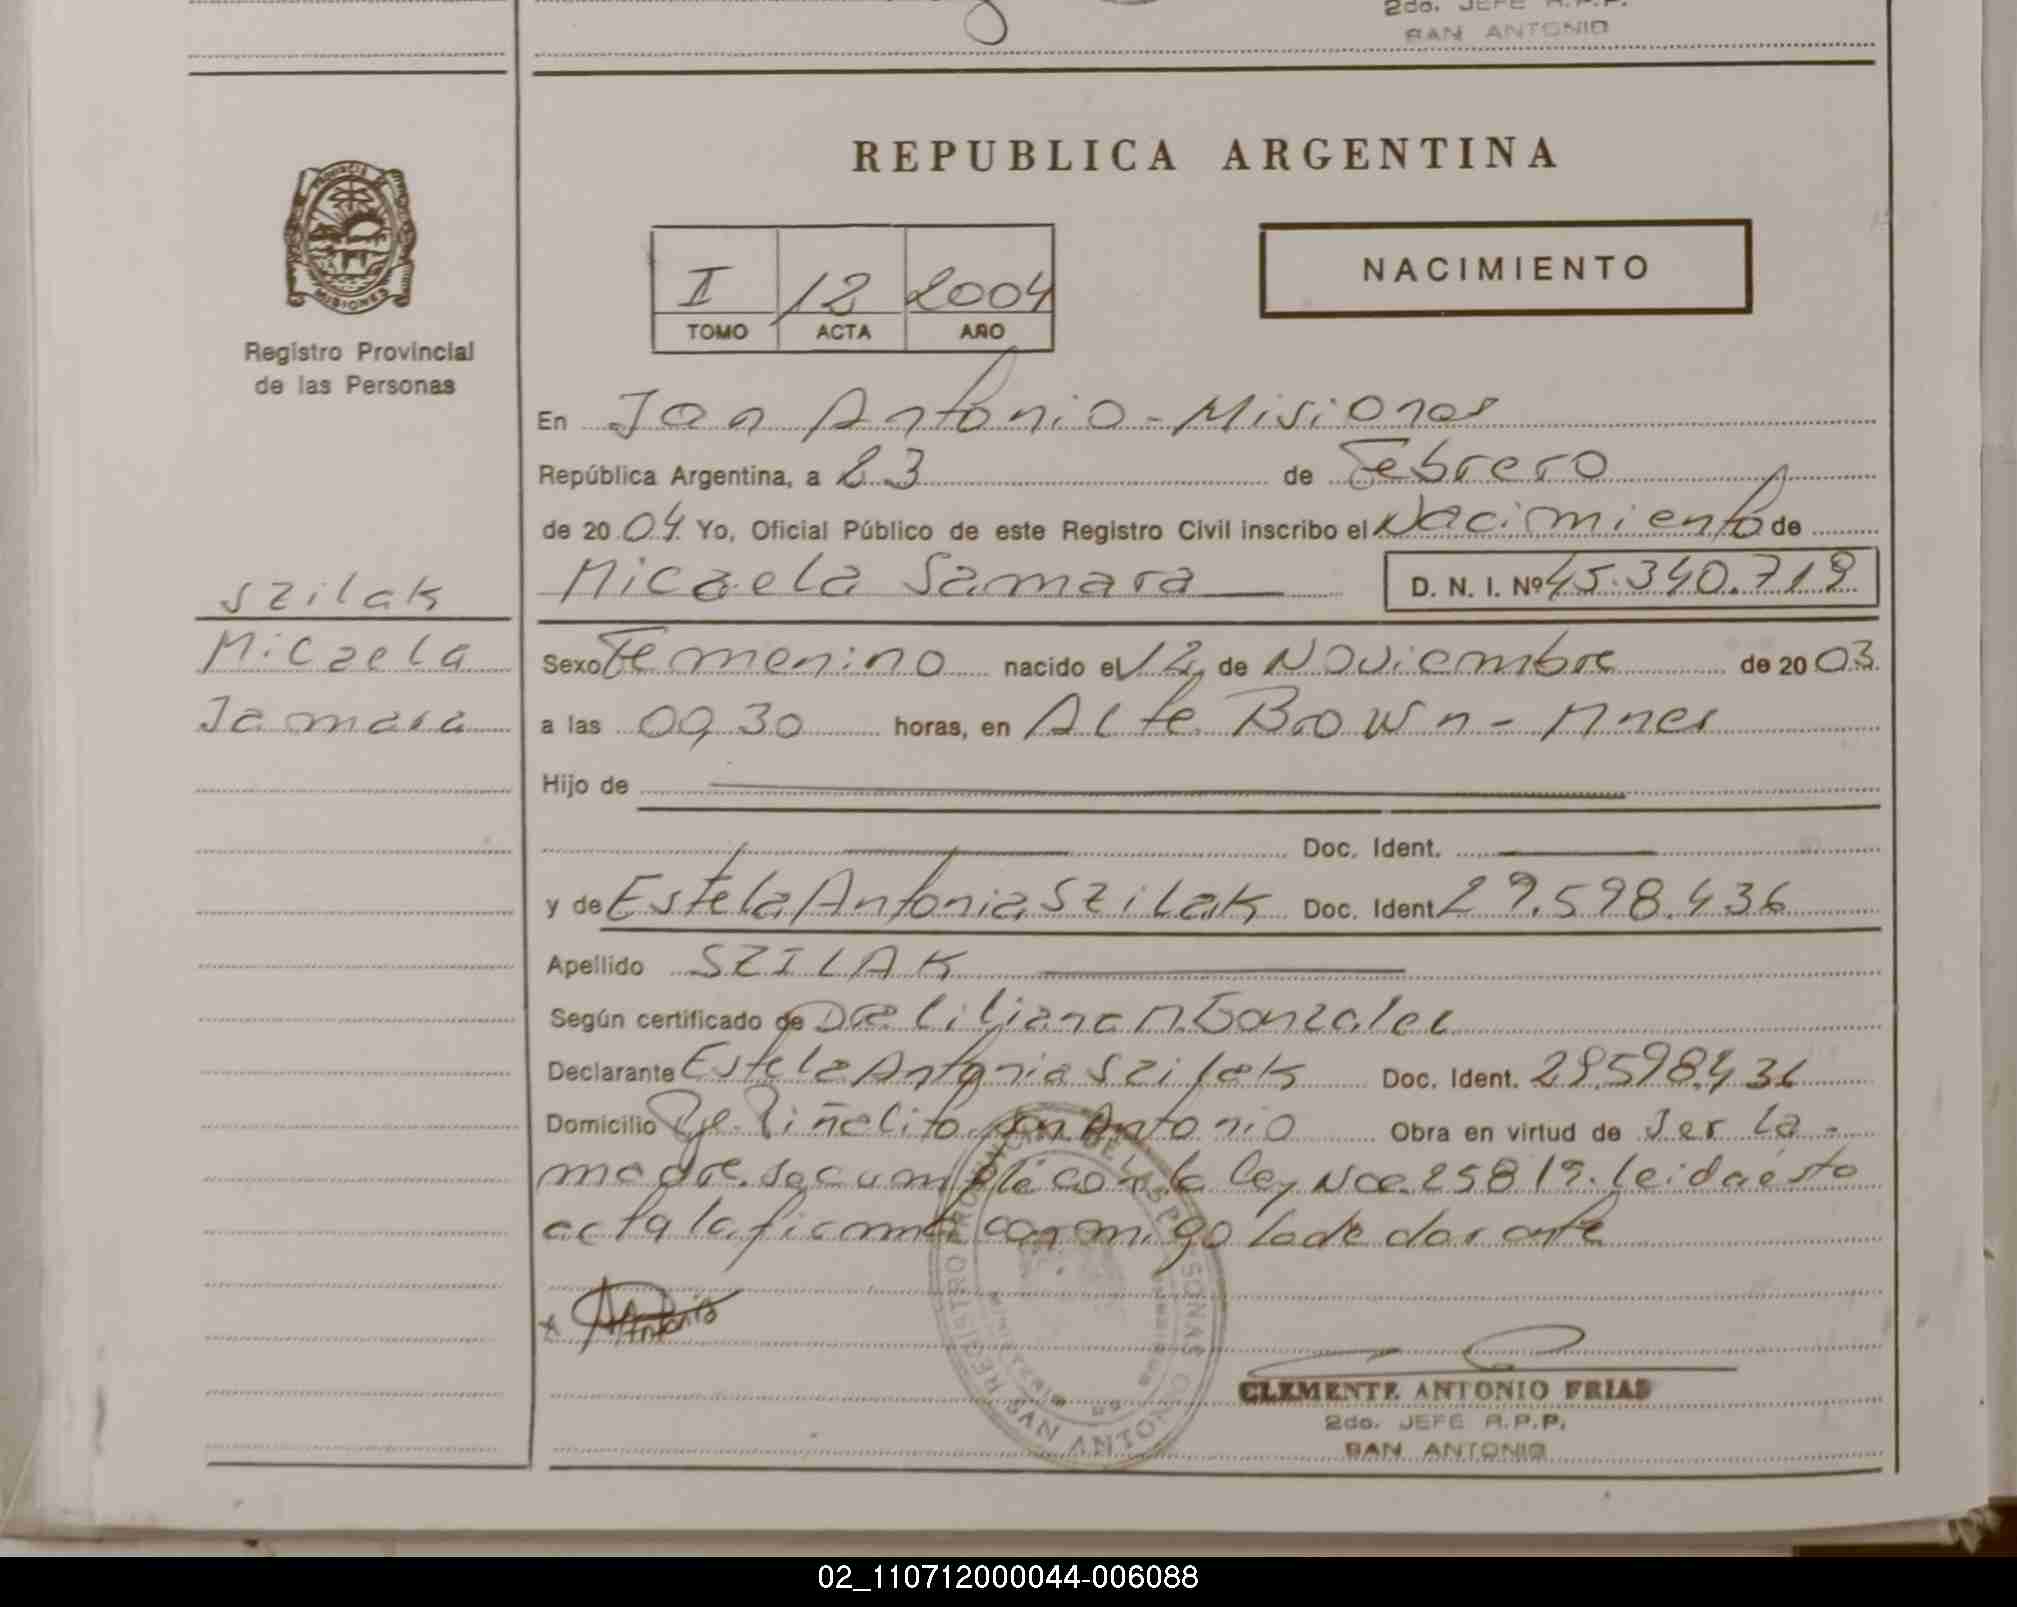 2do. JEFE R.P.P.
SAN ANTONIO
REPUBLICA ARGENTINA
PROVINCIA DE
MISIONES
I 12 2004
TOMO ACTA AÑO
NACIMIENTO
Registro Provincial
de las Personas
En San Antonio - Misiones
República Argentina, a 23 de Febrero
de 2004 Yo, Oficial Público de este Registro Civil inscribo el Nacimiento de
Micaela Samara D. N. I. Nº 45.340.712
Szilak
Micaela
Samara
Sexo Femenino nacido el 12 de Noviembre de 2003
a las 09,30 horas, en Alte Brown - Mnes
Hijo de
Doc. Ident.
y de Estela Antonia Szilak Doc. Ident 29.598.436
Apellido SZILAK
Según certificado de Dra Liliana M. Gonzalez
Declarante Estela Antonia Szilak Doc. Ident. 29.598.436
Domicilio Piñalito San Antonio Obra en virtud de ser la
madre. se cumple con la ley Nro. 25819. leida esta
acta la firma conmigo la declarante
x Antonia
REGISTRO PROVINCIAL DE LAS PERSONAS
MINISTERIO DE
SAN ANTONIO
CLEMENTE ANTONIO FRIAS
2do. JEFE R.P.P.
SAN ANTONIO
02_110712000044-006088